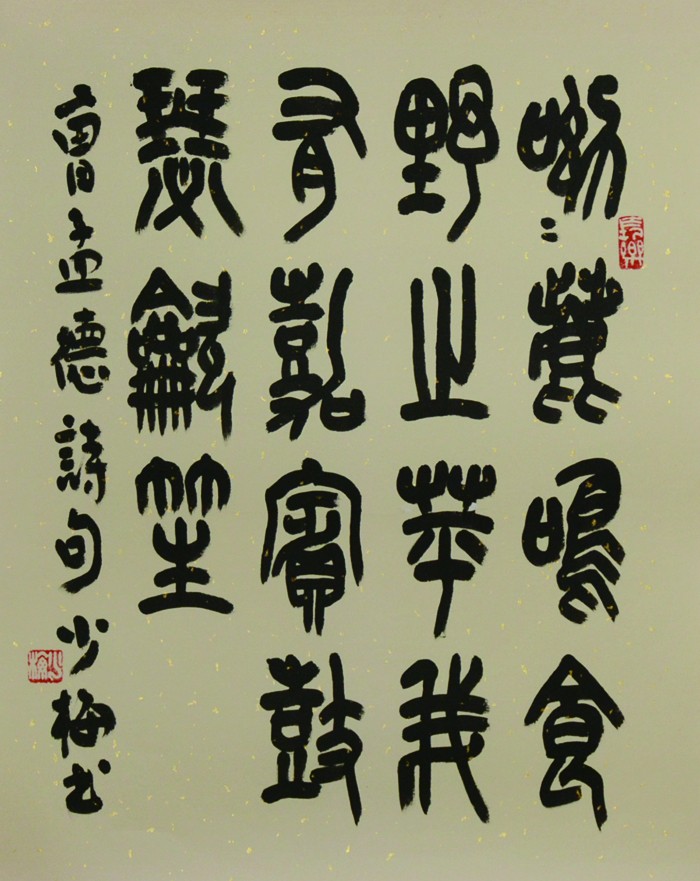 呦〻鹿鳴食
野之苹我
有嘉賓鼓
瑟龡笙
曹孟德詩句少梅书
少梅